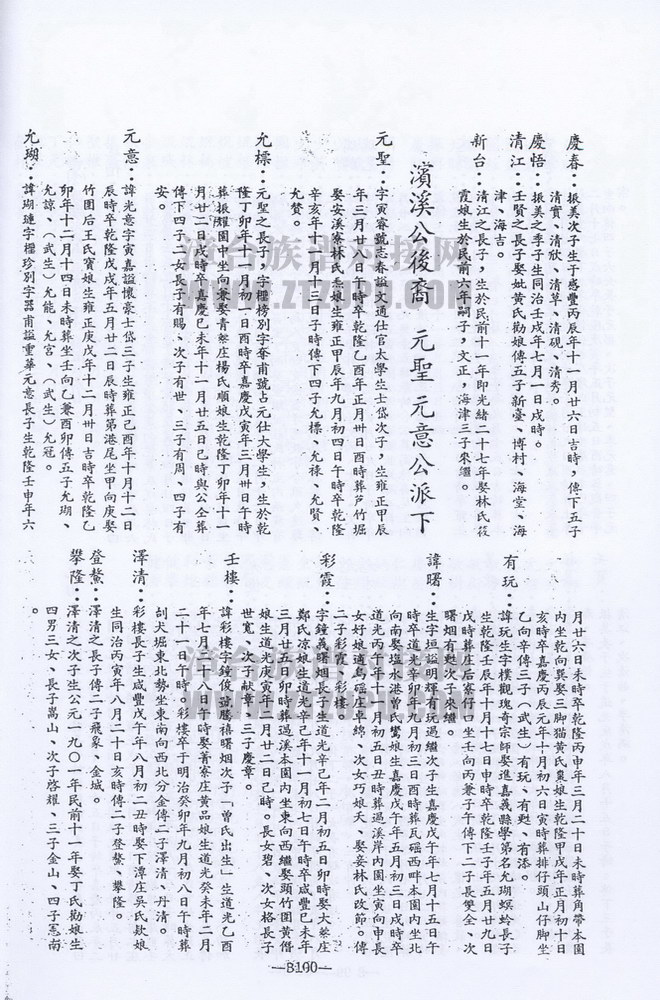 慶春：振美次子生于咸豐丙辰年十一月廿六日吉時，傳下五子
清賓、清欣、清草、清硯、清秀。
慶悟：振美之季子生同治壬戌年七月一日戌時。
清江：壬賢之長子娶妣黃氏勸娘傳五子新臺、博村、海堂、海
津、海吉。
新台：清江之長子，生於民前十一年即光緒二十七年娶林氏筱
霞娘生於民前六年嗣子，文正，海津三子來繼。
濱溪公後裔　元聖元意公派下
元聖：字寅睿號志春謚文通仕官太學生士岱次子，生雍正甲辰
年三月廿八日午時卒乾隆乙酉年正月卅日酉時葬芦竹堀
娶安溪寮林氏　娘生雍正甲辰年九月初四日午時卒乾隆
辛亥年十月十三日子時傳下四子允標、允祿、允賢、
允贊。
允標：元聖之長子，字樞榜別字奮甫號占元仕大學生，生於乾
隆丁卯年十一月初一日酉時卒嘉慶戊寅年三月卅日午時
葬振耀園中坐向兼娶青寮庄楊氏順娘生乾隆丁卯年十一
月廿二日戌時卒嘉慶己未年十一月廿五日己時與公仝葬
傳下四子二女長子有賜、次子有世、三子有周、四子有
安。
元意：諱光意字寅嘉謚懷豪士岱三子生雍正己酉年十月十二日
辰時卒乾隆戊戌年五月廿二日辰時葬第港尾坐甲向庚娶
竹圍后王氏寶娘生雍正庚戌年十二月卅日吉時卒乾隆乙
卯年十二月十四日未時葬坐壬向乙兼酉卯傳五子允瑚、
允諒、（武生）允能、允宮、（武生）允冠。
允瑚：諱瑚璉字樞珍別字器甫謚重華元意長子生乾隆壬申年六
月廿六日未時卒乾隆丙申年三月二十日未時葬角帶本園
內坐乾向巽娶三脚猫黃氏　娘生乾隆甲戌年正月初十日
亥時卒嘉慶丙辰元年十月初六日寅時葬排仔頭山仔脚坐
乙向辛傳三子（武生）有玩、有　、有添。
有玩：諱玩生字樸觀瑰奇宗師娶進嘉義縣學第名允瑚螟蛉長子
生乾隆壬辰年十月十七日申時卒乾隆壬子年五月廿九日
戌時葬庄后寮仔口坐壬向丙兼子午傳下二子長雙全、次
曙烟有　次子來繼。
諱曙：生字垣謚明輝有玩過繼次子生嘉慶戊午年七月十五日午
時卒道光辛丑年九月初三日酉時葬瓦磘西畔本園內坐北
向南娶塩水港曾氏鸞娘生嘉慶戊午年五月初三日戌時卒
道光丙午年十二月初五日丑時葬過溪岸內園坐寅向申長
女好娘適烏磘庄卓綿、次女巧娘夭、娶妾林氏改節。傳
二子彩霞、彩樓。
彩霞：字鐘禹曙烟長子生道光辛己年二月初五日卯時娶大寮庄
鄭氏凉娘生道光辛己年十一月初七日午時卒咸豐己未年
三月廿五日卯時葬過溪本園內坐東向西繼娶頭竹圍黃僭
娘生道光庚寅年二月廿二日己時。長女碧、次女格長子
世寬、次子献章、三子慶章。
壬樓：諱彩樓字鐘俊謚勝禧曙烟次子「曾氏出生」生道光乙酉
年七月三十八日午時娶菁寮庄黃品娘生道光癸未年二月
二十一日午時。彩樓卒于明治癸卯年九月初八日午時葬
刣犬堀東北勢坐東南向西北分金傳二子澤清、丹清。
澤清：彩樓長子生咸豐戊午年八月初二丑時娶下潭庄吳氏欵娘
生同治丙寅年八月二十日亥時傳二子登鰲、攀隆。
登鰲：澤清之長子傳二子飛象、金城。
攀隆：澤清之次子生公元一九〇一年民前十一年娶丁氏勸娘生
四男三女、長子萬山、次子啓耀、三子金山、四子憲南
。
—3100—